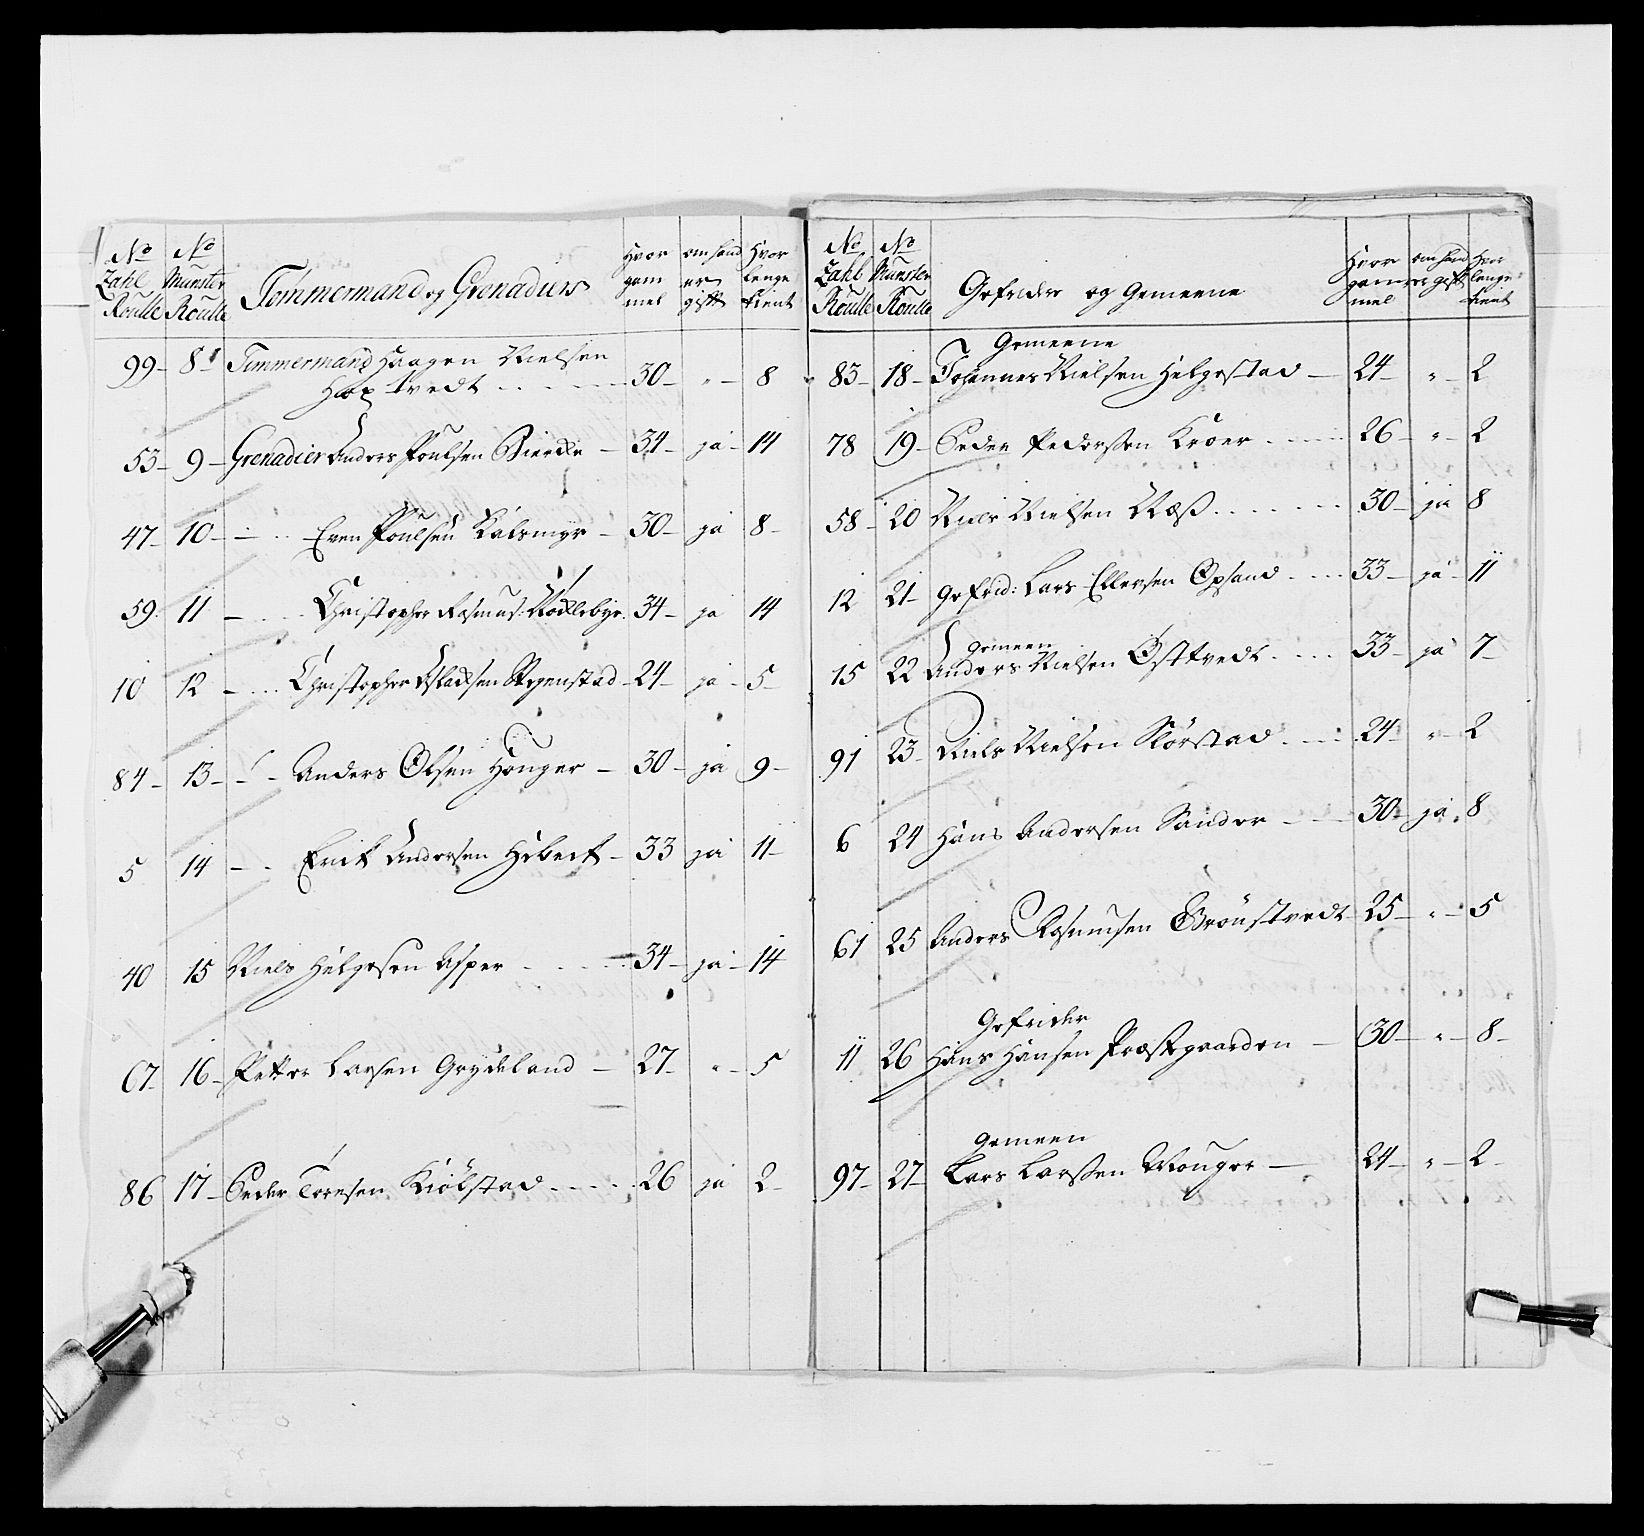 No Zahl Roulle | No Munster Roulle | Tømmermand og Grenadiers | Hvor gammel | om hand er gift | Hvor lenge tient
99 | 8 | Timmermand Haagen Nielsen
Hogtvedt | 30 | " | 8
53 | 9 | Grenadier Anders Poulsen Bierche | 34 | ja | 14
47 | 10 | Even Poulsen Kalsmyr | 30 | ja | 8
59 | 11 | Christopher Rasmus: Nordbye | 34 | ja | 14
10 | 12 | Christopher Asladsen | 24 | ja | 5
84 | 13 | Anders Olsen Houger | 30 | ja | 9
5 | 14 | Erik Andersen | 33 | ja | 11
40 | 15 | Niels Helgesen Asper | 34 | ja | 14
67 | 16 | Petter Larsen Grydeland | 27 | " | 5
86 | 17 | Peder Toresen Kiölstad | 26 | ja | 2
No Zahl Roulle | No Munster Roulle | Gefrider og Gemeene | Hvor gammel | om hand er gift | Hvor lenge tient
Gemeene
83 | 18 | Johannes Nielsen Helgestad | 24 | " | 2
78 | 19 | Peder Pederssen Kroer | 26 | " | 2
58 | 20 | Niels Nielsen Næss | 30 | ja | 8
12 | 21 | Gefrid: Lars Ellersen Opsand | 33 | ja | 11
Gemeen
15 | 22 | Anders Nielsen Østtvedt | 33 | ja | 7
91 | 23 | Niels Nielsen Slorstad | 24 | " | 2
6 | 24 | Hans Andersen Sander | 30 | ja | 8
61 | 25 | Anders Rasmusen Grönstvedt | 25 | " | 5
Gefrider
11 | 26 | Hans Hansen Præstgaarden | 30 | " | 8
Gemeen
97 | 27 | Lars Larssen Mouger | 24 | " | 2